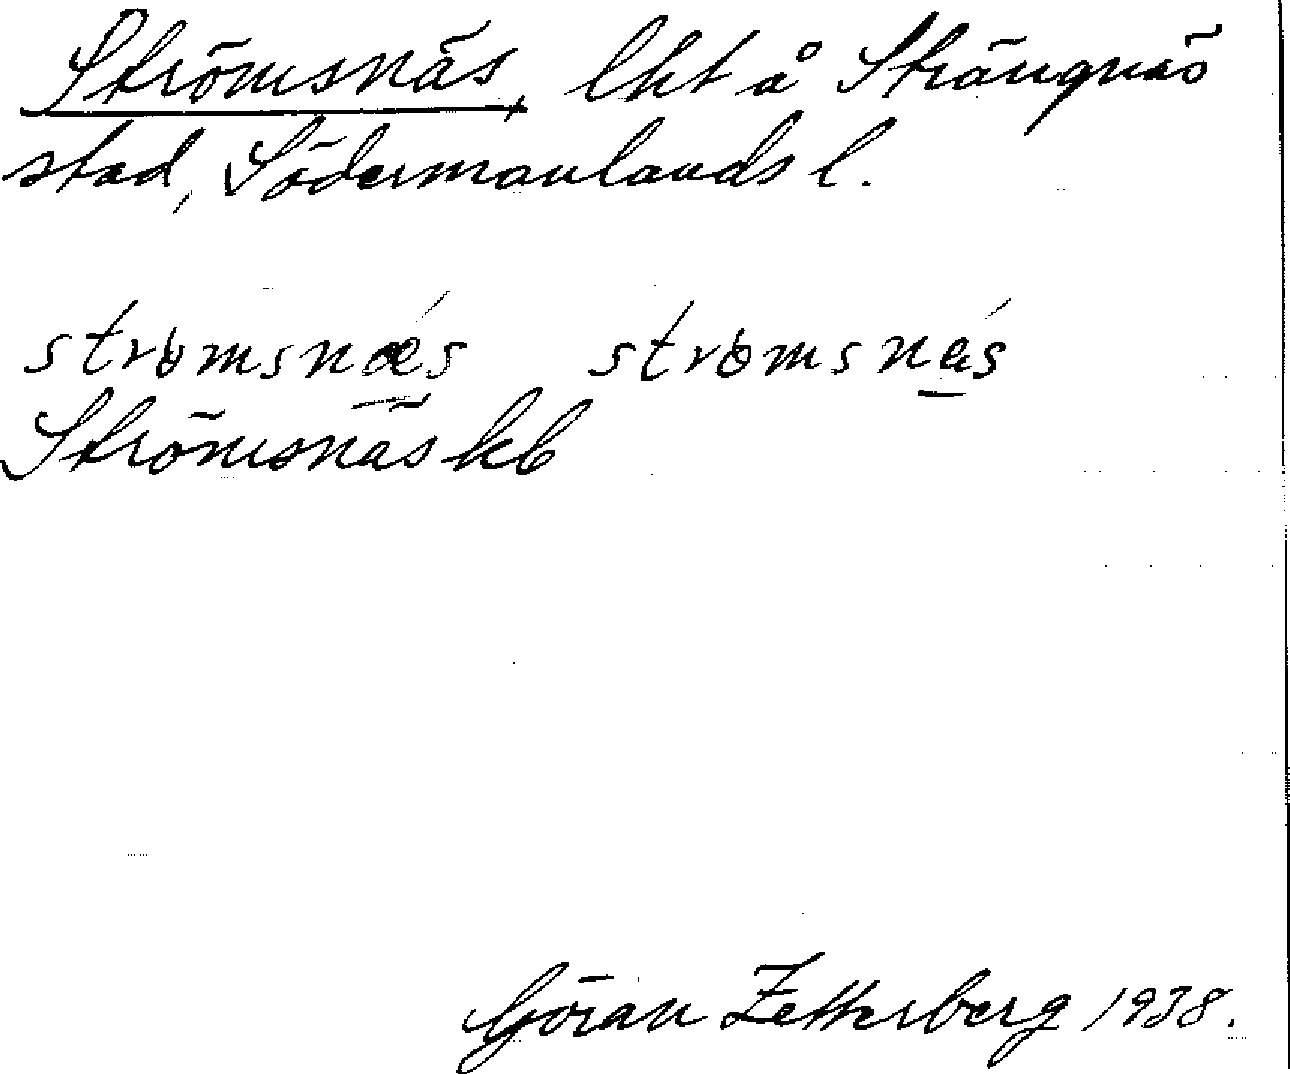 Strömsnäs, lht å Strängnäs
stad, Södermanlands l.
strömsnǽ̲s strömsná̲s
Strömsnäs kb
Göran Zetterberg 1938.